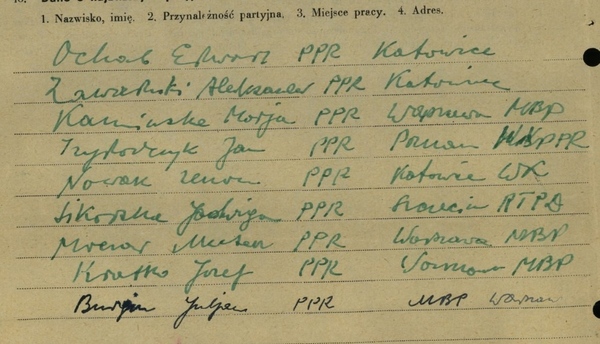 1. Nazwisko, imię. 2. Przynależność partyjna. 3. Miejsce pracy. 4. Adres.
Ochab Edward PPR Katowice
Zawadzki Aleksander PPR Katowice
Kamińska Marja PPR Warszawa MBP
Izydorczyk Jan PPR Poznań PPR
Nowak Zenon PPR Katowice WK
Sikorska Jadwiga PPR Szczecin RTPD
Moczar Mieten PPR Warszawa MBP
Kratko Józef PPR Warszawa MBP
Burgin Juljan PPR MBP Warszawa